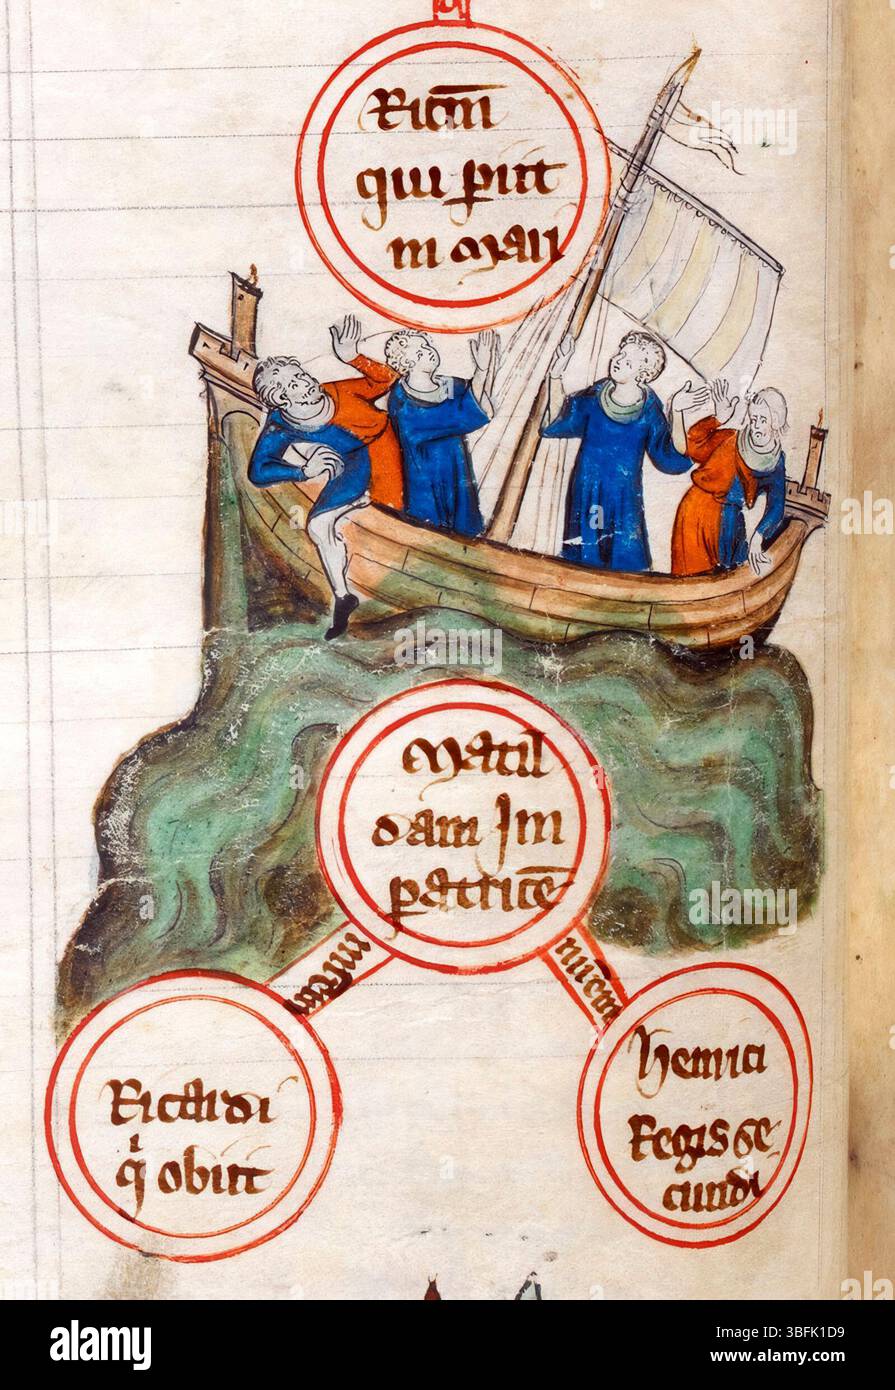 Ricm̄
qui p̲iit
in mari
Matil
dam Im
ꝑatricē
Ricardi
q̇ obiit
henrici
Regis se
cundi
alamy
Image ID: 3BFK1D9
www.alamy.com